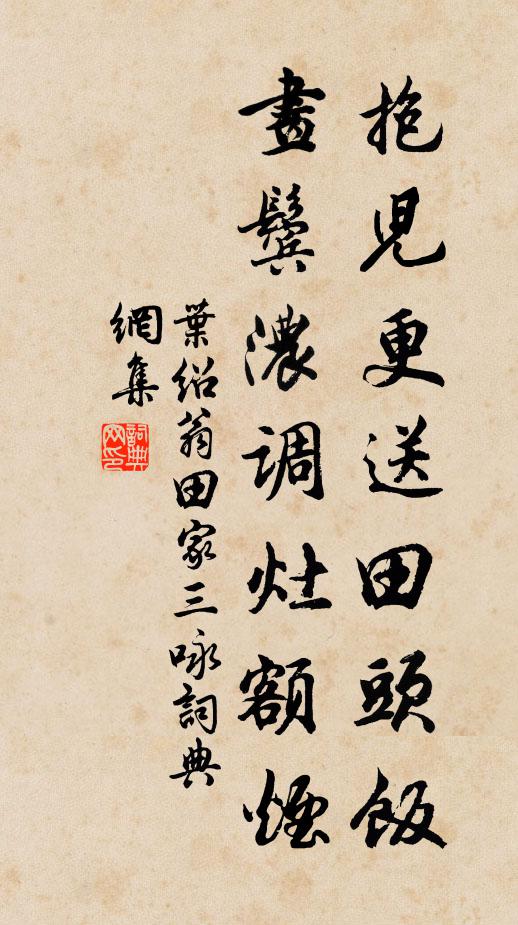 抱児更送田頭飯
畫鬢濃調灶額煙
葉紹翁田家三咏詞典
網集
詞典網印